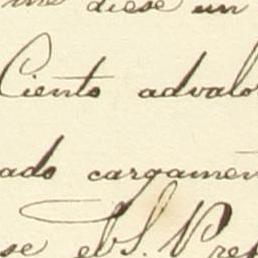 me diese un
Ciento advalo
ado cargamen
se el S. Pres